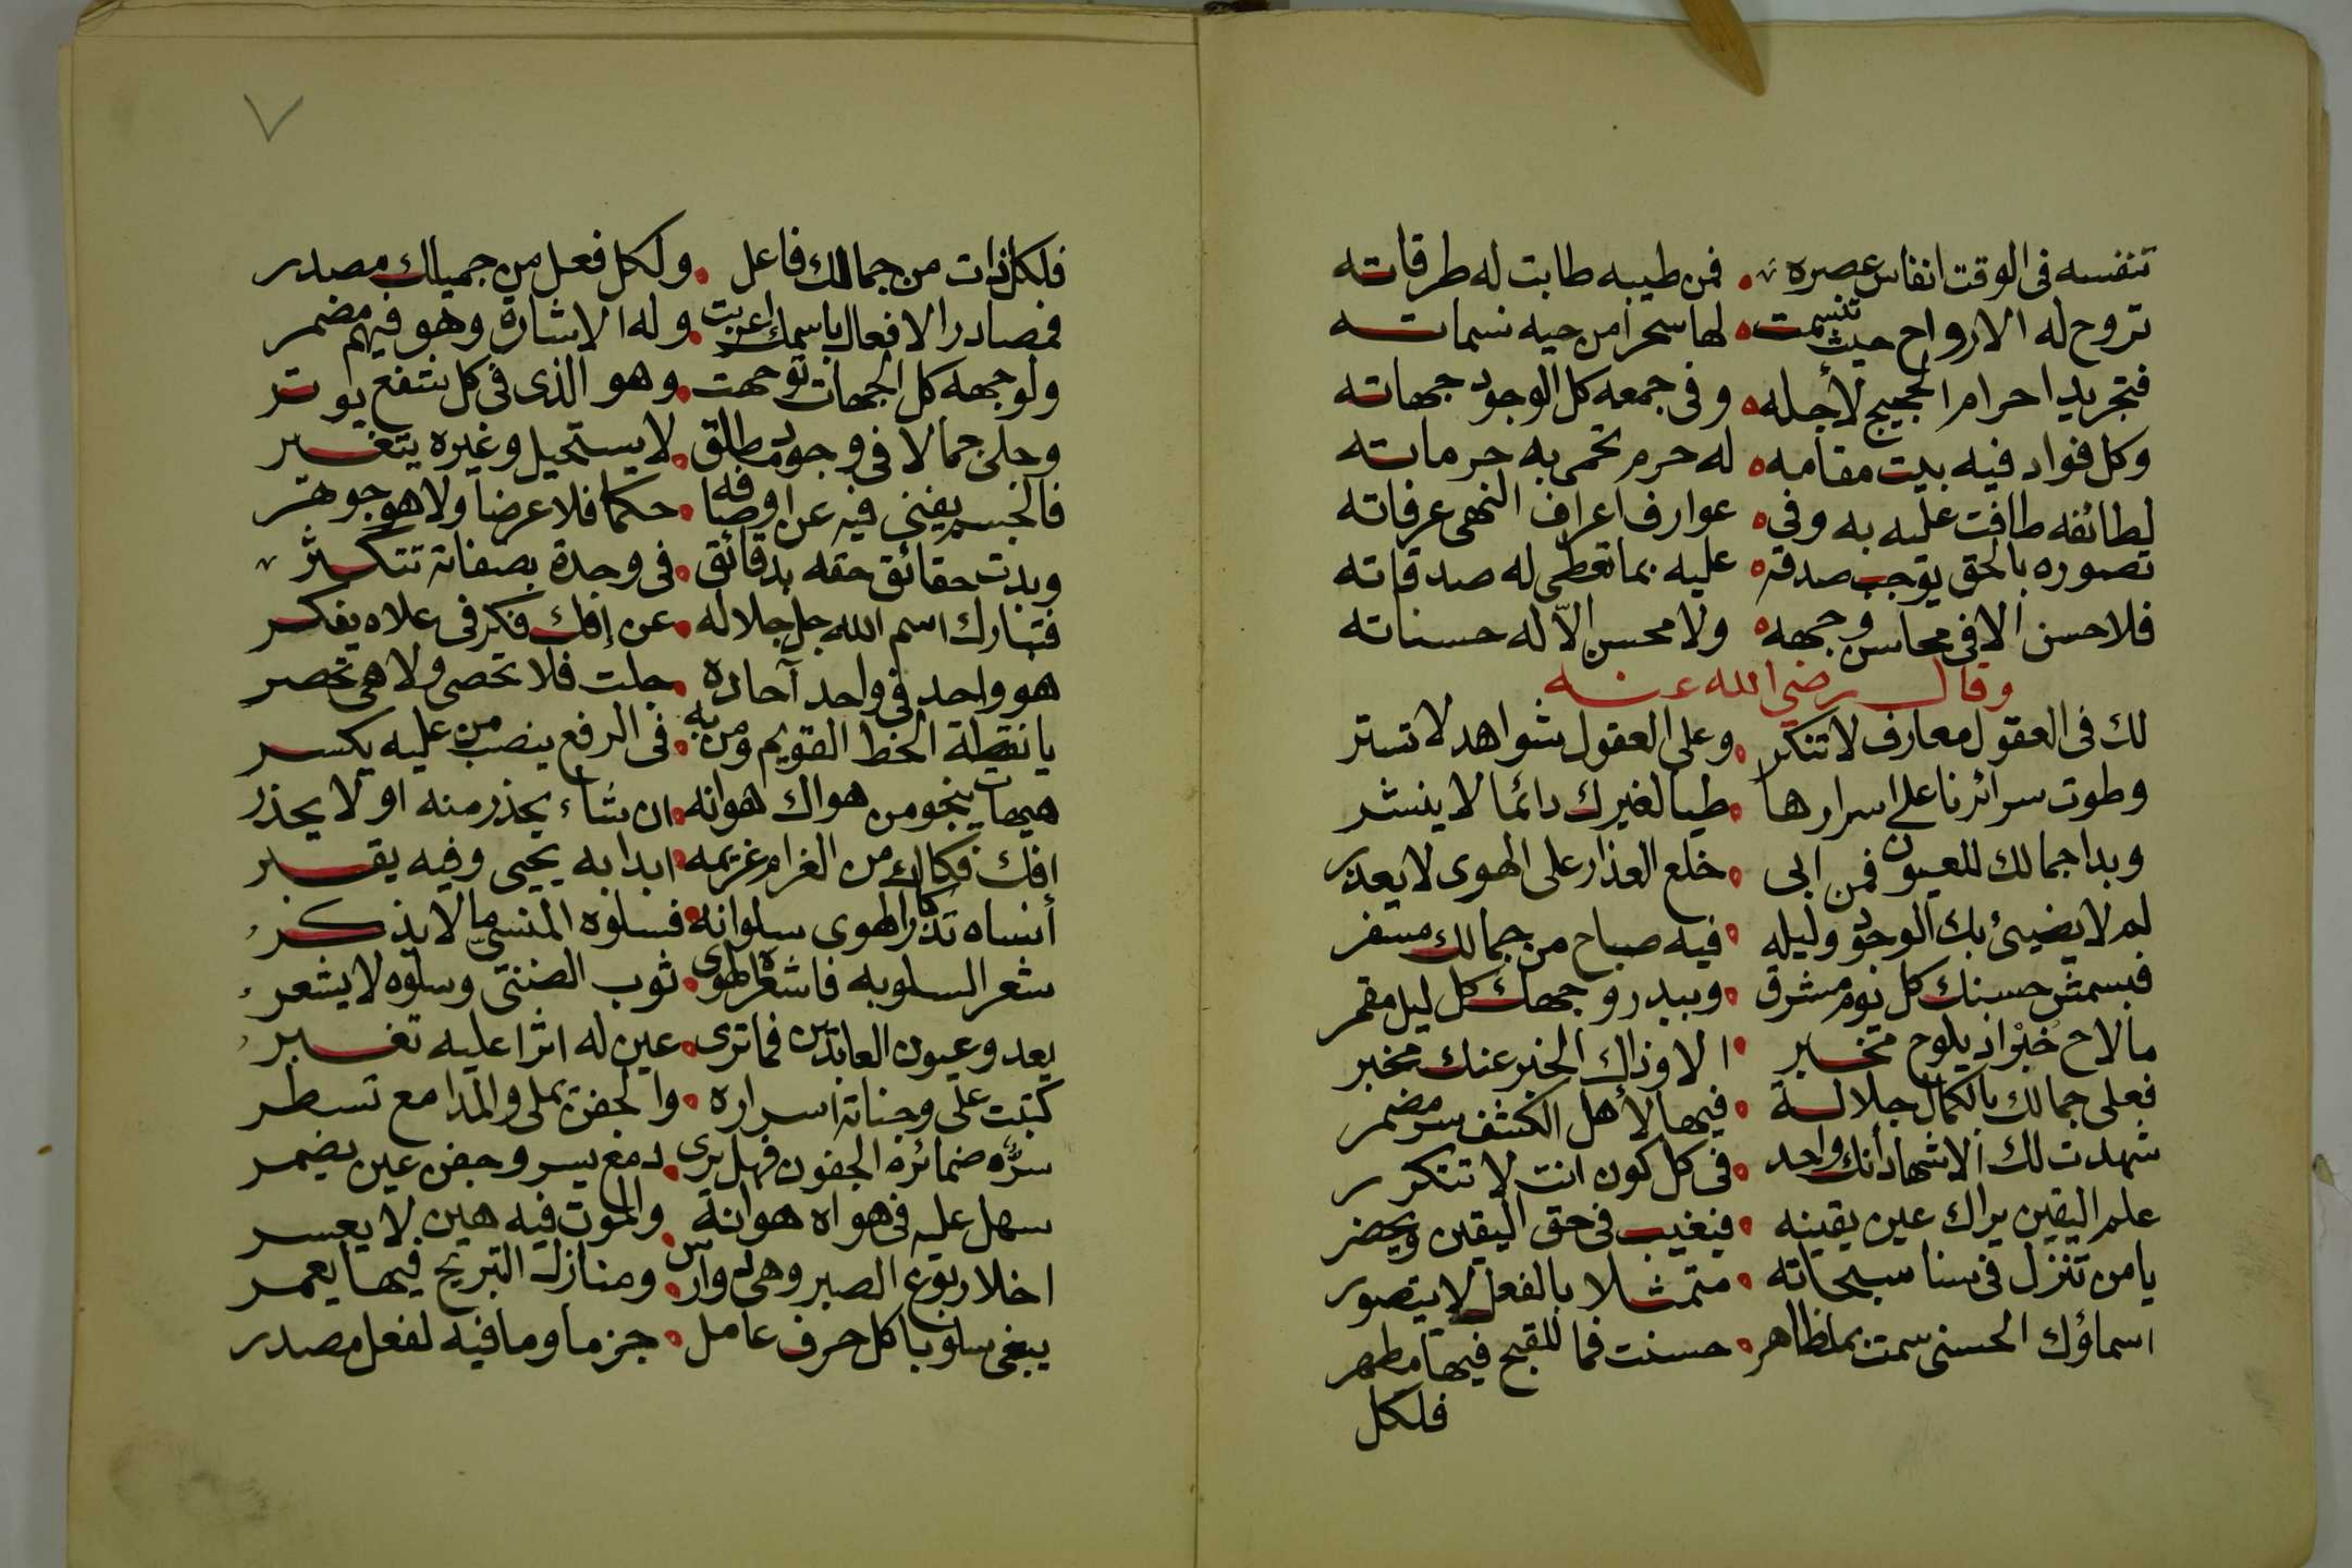 تنفسه فى الوقت انفاس عصره • فمن طيبه طابت له طرقاته
تروح له الارواح حيث تنسمت • لها سحرا من حيه نسماته
فتجريد احرام الحجيج لأجله • وفى جمعه كل الوجود جهاته
وكل فواد فيه بيت مقامه • له حرم تحمى به حرماته
لطائفه طافت عليه به وفى • عوارف اعراف النهى عرفاته
تصوره بالحق يوجب صدقه • عليه بما تعطى له صدقاته
فلا حسن الا فى محاسن وجهه • ولا محسن الّا له حسناته
وقال رضى الله عنه
لك فى العقول معارف لا تنكر • وعلى العقول شواهد لا تستر
وطوت سرائرنا على اسرارها • طيا لغيرك دائما لا ينشر
وبدا جمالك للعيون فمن ابى • خلع العذار على الهوى لا يعذر
لم لا يضيئ بك الوجود وليله • فيه صباح من جمالك مسفر
فبسمش حسنك كل يوم مشرق • وببدر وجهك كل ليل مقمر
ما لاح خبر اذ يلوح مخبر • الا وذاك الخبر عنك مخبر
فعلى جمالك بالكمال جلالة • فيها لأهل الكشف سر مضمر
شهدت لك الاشهاد أنك واحد • فى كل كون انت لا تتكرر
علم اليقين يراك عين يقينه • فيغيب فى حق اليقين ويحضر
يا من تنزل فى سنا سبحاته • متمثلا بالفعل لا يتصور
اسماؤك الحسنى سمت بمظاهر • حسنت فما للقبح فيها مظهر
فلكل
٧
فلكل ذات من جمالك فاعل • ولكل فعل من جميلك مصدر
فمصادر الافعال باسمك اعربت • وله الاشارة وهو فيهم مضمر
ولوجهه كل الجهات توجهت • وهو الذى فى كل شفع يوتر
وجلى جمالا فى وجود مطلق • لا يستحيل وغيره يتغير
فالجسم يفنى فيه عن اوصافه • حكما فلا عرضا ولا هو جوهر
وبدت حقائق حقه بدقائق • فى وحدة بصفاته تتكثر
فتبارك اسم الله جل جلاله • عن إفك فكر فى علاه يفكر
هو واحد فى واحد آحاده • جلت فلا تحصى ولا هى تحصر
يا نقطة الخط القويم ومن به • فى الرفع ينصب من عليه يكسر
هيهات ينجو من هواك هوانه • ان شاء يحذر منه او لا يحذر
افك فكاك من الغرام غريمه • ابدا به يحيى وفيه يقبر
أنساه تذكار الهوى سلوانه • فسلوه المنسي ما لا يذكر
شعر السلو به فاشعره الهوى • ثوب الضنى وسلوه لا يشعر
يعدو عيون العائدين فما ترى • عين له اثرا عليه تغبر
كتبت على وجناته اسراره • والجفن يملى والمدامع تسطر
سرّه ضمائره الجفون فهل يرى • دمع يسر وجفن عين يضمر
سهل عليه فى هواه هوانه • والموت فيه هين لا يعسر
اخلا ربوع الصبر وهى دوارس • ومنازل التبريح فيها يعمر
يبغى سلوبا كل حرف عامل • جزما وما فيه لفعل مصدر